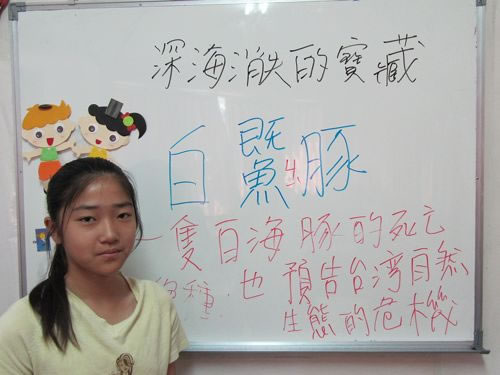 深海消失的寶藏
白鱀豚
一隻百海豚的死亡
種 也預告台湾自然
生態的危機